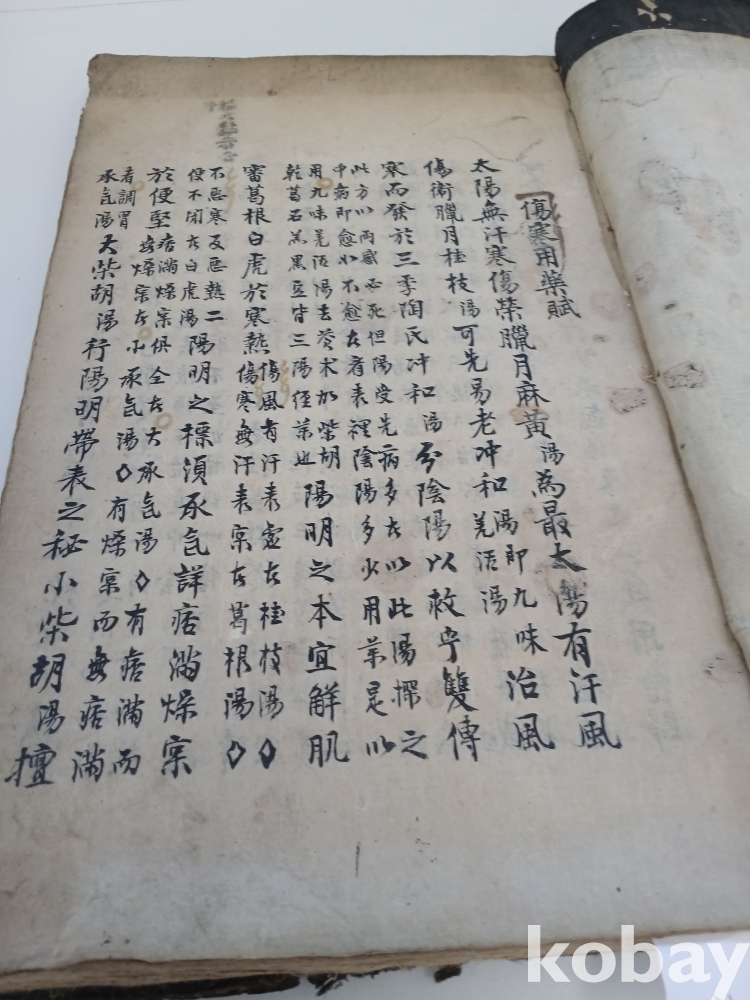 傷寒用藥賦
太陽無汗寒傷榮臘月麻黃湯為最太陽有汗風
傷衛臘月桂枝湯可先易老冲和湯即九味羌活湯治風
寒而發於三季陶氏冲和湯分陰陽以救乎雙傳
此方以兩感必死但陽受先病多在以此湯探之
中病即愈如不愈在看表裡陰陽多少用藥是以
用九味羌活湯去蒼朮加柴胡
乾葛石羔黑豆皆三陽經藥也
陽明之本宜解肌
審葛根白虎於寒熱
傷風有汗表虛在桂枝湯◇
傷寒無汗表宲在葛根湯◇
不惡寒反惡熱二
便不閉在白虎湯
陽明之標須承气詳痞滿燥宲
於便堅
痞滿燥宲俱全在大承气湯◇有痞滿而
無燥宲在小承气湯◇有燥宲而無痞滿
者調胃
承气湯
大柴胡湯行陽明帶表之秘小柴胡湯擅
kobay